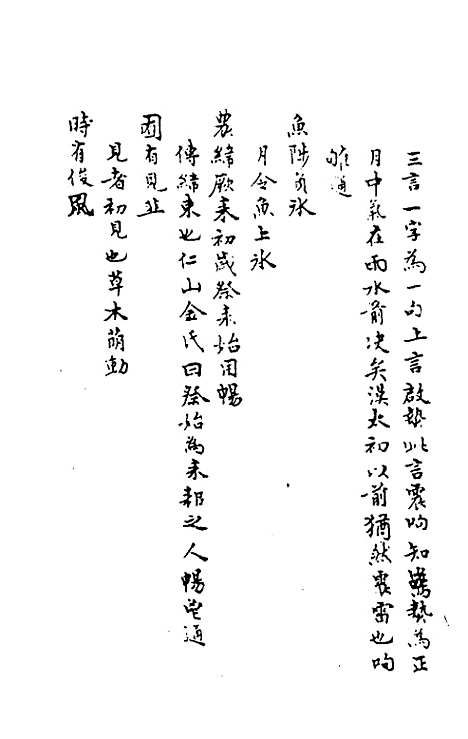 三言一字為一句上言啟蟄此言震呴知驚蟄為正
月中氣在雨水前决矣漢太初以前猶然震雷也呴
雊通
魚陟負冰
月令魚上冰
農緯厥耒初歲祭耒始用暢
傳緯束也仁山金氏曰祭始為耒耜之人暢鬯通
囿有見韭
見者初見也草木萌動
時有俊風